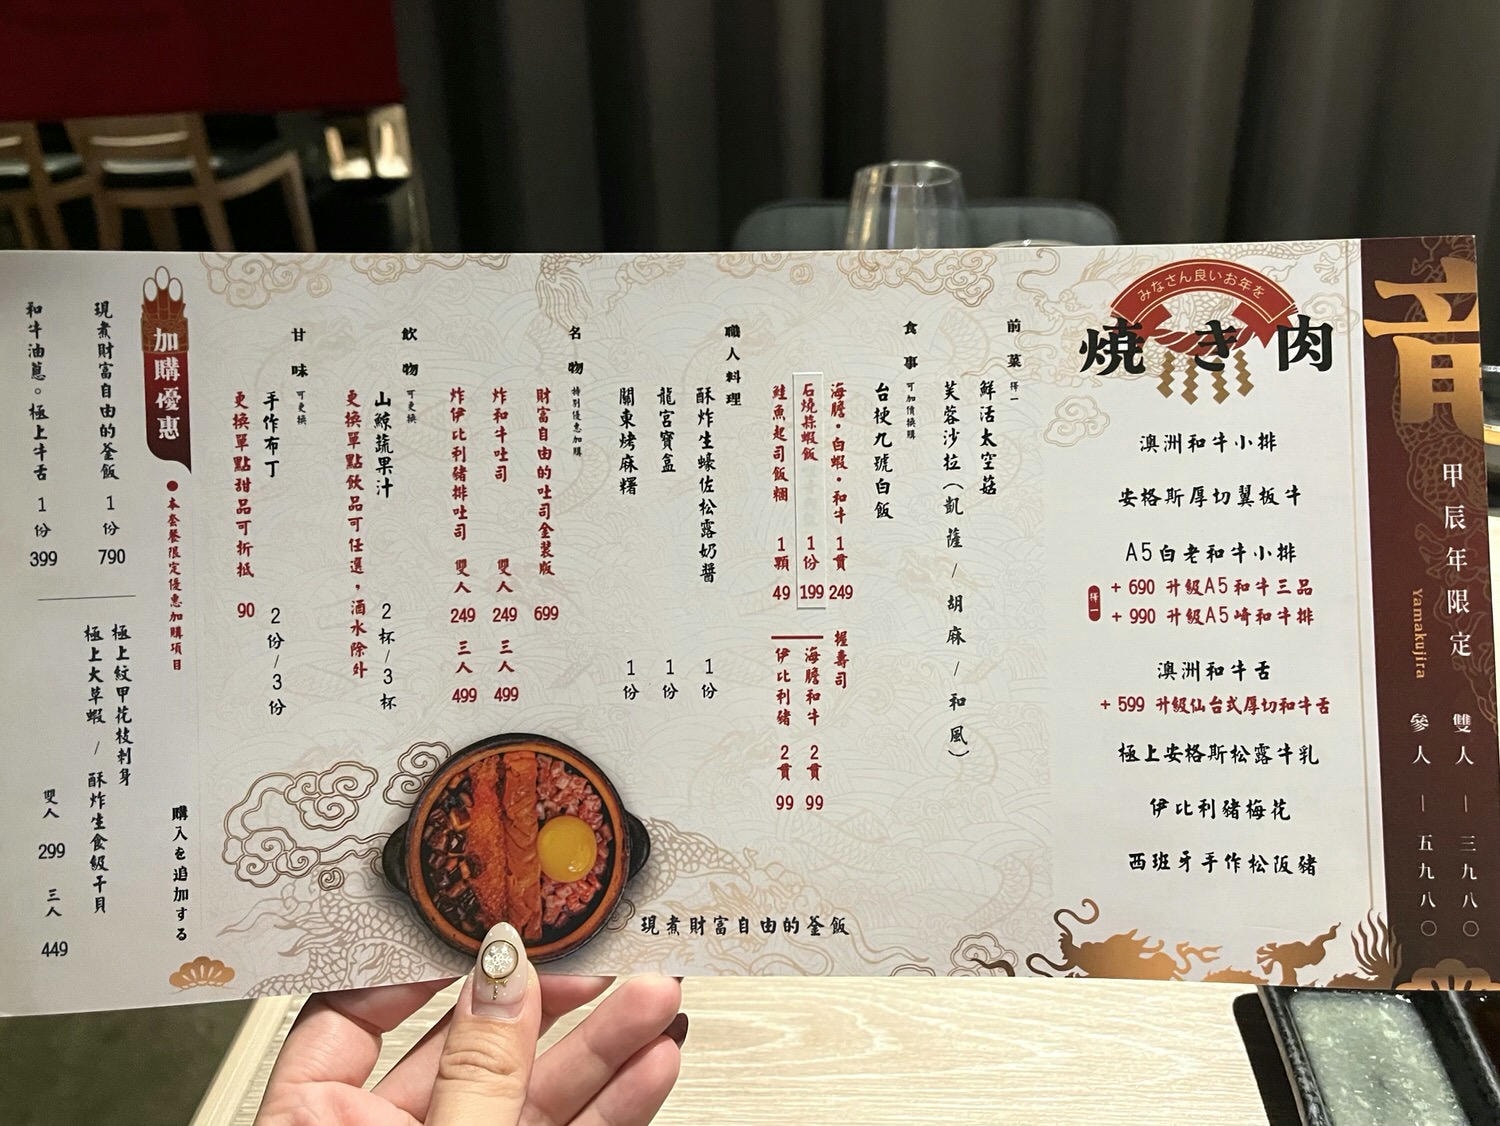 甲辰年限定
Yamakujira
雙人｜三九八〇
參人｜五九八〇
みなさん良いお年を
燒き肉
澳洲和牛小排
安格斯厚切翼板牛
A5白老和牛小排
擇一
+ 690 升級A5和牛三品
+ 990 升級A5崎和牛排
澳洲和牛舌
+ 599 升級仙台式厚切和牛舌
極上安格斯松露牛乳
伊比利豬梅花
西班牙手作松阪豬
前菜 擇一
鮮活太空菇
芙蓉沙拉（凱薩/胡麻/和風）
食事 可加價換購
台梗九號白飯
海膽・白蝦・和牛 1貫 249
石燒蒜蝦飯 1份 199
鮭魚起司飯糰 1顆 49
握壽司
海膽和牛 2貫 99
伊比利豬 2貫 99
職人料理
酥炸生蠔佐松露奶醬 1份
龍宮寶盒 1份
關東烤麻糬 1份
名物 特別優惠加購
財富自由的吐司金裝版 699
炸和牛吐司 雙人 249 三人 499
炸伊比利豬排吐司 雙人 249 三人 499
飲物 可更換
山鯨蔬果汁 2杯/3杯
更換單點飲品可任選，酒水除外
甘味 可更換
手作布丁 2份/3份
更換單點甜品可折抵 90
現煮財富自由的釜飯
加購優惠
●本套餐限定優惠加購項目
購入を追加する
現煮財富自由的釜飯 1份 790
和牛油蔥。極上牛舌 1份 399
極上紋甲花枝刺身
極上大草蝦 / 酥炸生食級干貝
雙人 299 三人 449